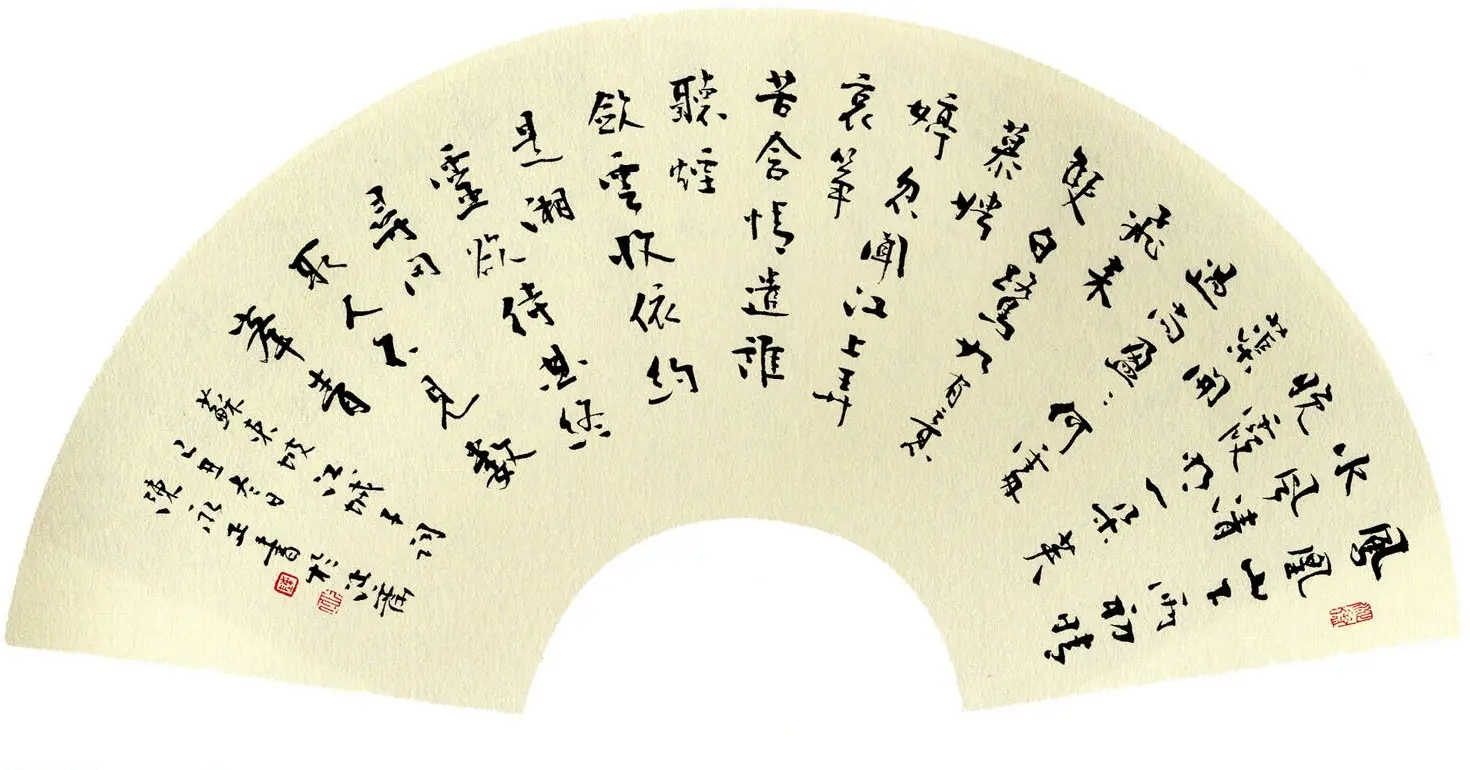 鳳凰山下雨初晴
水風清
晚霞明一朵芙
蕖開
過尚盈〻何處
飛來
雙白鷺如有意
慕娉
婷忽聞江上弄
哀箏
苦含情遣誰
聽煙
斂雲收依約
是湘
靈欲待曲終
尋問
取人不見數
峯青
蘇東坡江城子詞
己丑春日
陳永正書於沚齋